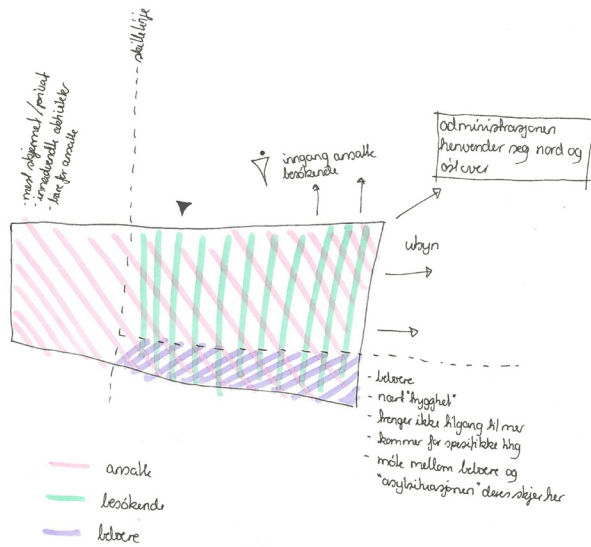 skillelinje
- mest skjermet/privat
- innadvendte aktiviteter
- bare for ansatte
inngang ansatte
besökende
administrasjonen
henvender seg nord og
öst over
utsyn
- beboere
- nært "trygghet"
- trenger ikke tilgang til mer
- kommer for spesifikke ting
- möte mellom beboere og
"asylsituasjonen" deres skjer her
ansatte
besökende
beboere